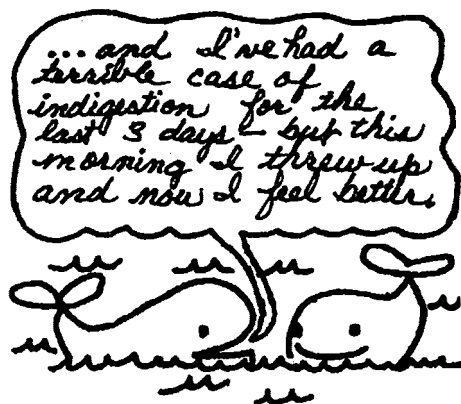 ...and I've had a
terrible case of
indigestion for the
last 3 days – but this
morning I threw up
and now I feel better.